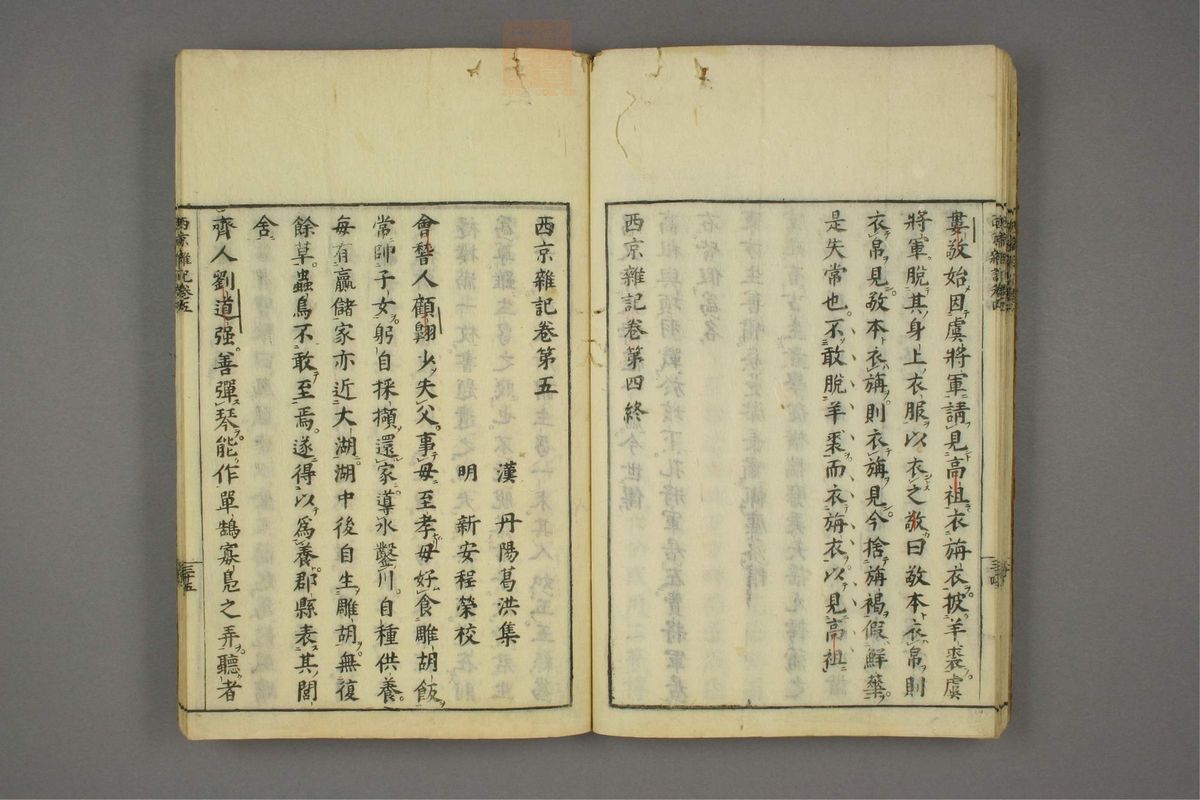 婁敬始因虞將軍請見高祖衣旃衣披羊裘虞
將軍脫其身上衣服以衣之敬曰敬本衣帛則
衣帛見敬本衣旃則衣旃見今捨旃褐假鮮華
是失常也不敢脫羊裘而衣旃衣以見高祖
西京雜記卷第四終
西京雜記卷第五
漢 丹陽葛洪集
明 新安程榮校
會稽人顧翱少失父事母至孝母好食雕胡飯
常帥子女躬自採擷還家導水鑿川自種供養
每有贏儲家亦近大湖湖中後自生雕胡無復
餘草蟲鳥不敢至焉遂得以爲養郡縣表其閭
舍
齊人劉道强善彈琴能作單鵠寡鳧之弄聽者
西京雜記卷五
三十五